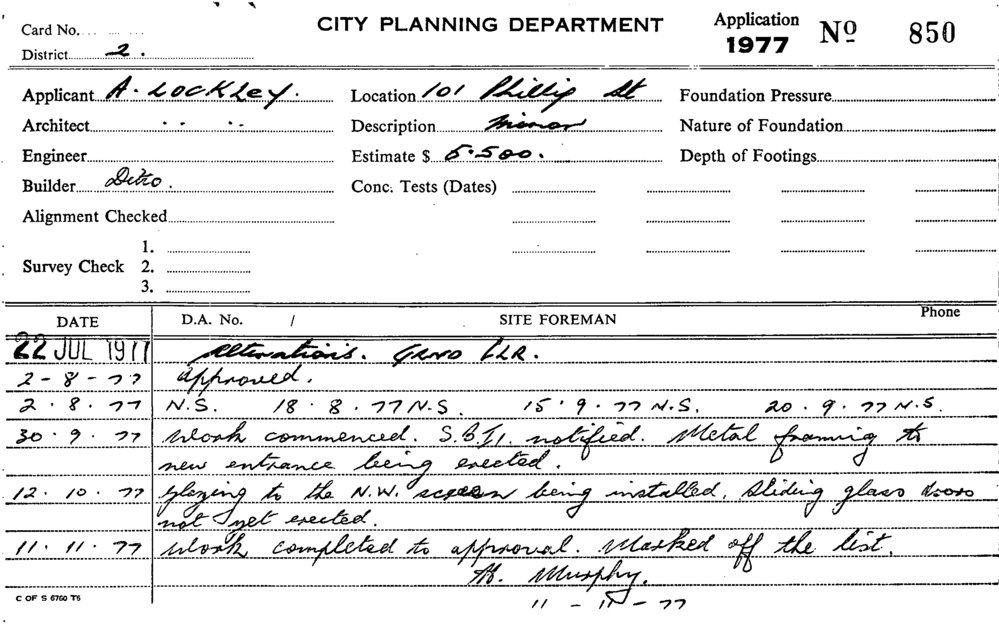 CITY PLANNING DEPARTMENT
Application 1977 No 850
Card No.
District 2.
Applicant A. LOCKLEY. Location 101 Phillip St Foundation Pressure
Architect " " Description Minor Nature of Foundation
Engineer Estimate $ 5.500. Depth of Footings
Builder Ditto. Conc. Tests (Dates)
Alignment Checked
Survey Check 1.
2.
3.
DATE D.A. No. / SITE FOREMAN Phone
22 JUL 1977 Alterations. GRND FLR.
2-8-77 Approved.
2.8.77 N.S. 18.8.77 N.S. 15.9.77 N.S. 20.9.77 N.S.
30.9.77 Work commenced. S.B.I. notified. Metal framing to
new entrance being erected.
12.10.77 Glazing to the N.W. screen being installed. Sliding glass doors
not yet erected.
11.11.77 Work completed to approval. Marked off the list.
Murphy.
11-11-77
C OF S 6760 T6